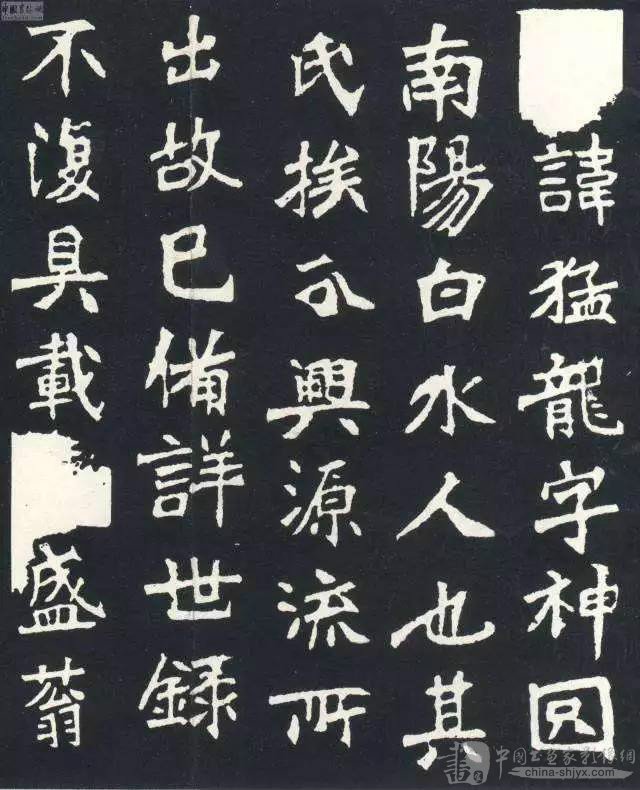 諱猛龍字神囧
南陽白水人也其
氏族分興源流所
出故已備詳世錄
不復具載盛蓊
中国书画家影像網
china-shjyx.com